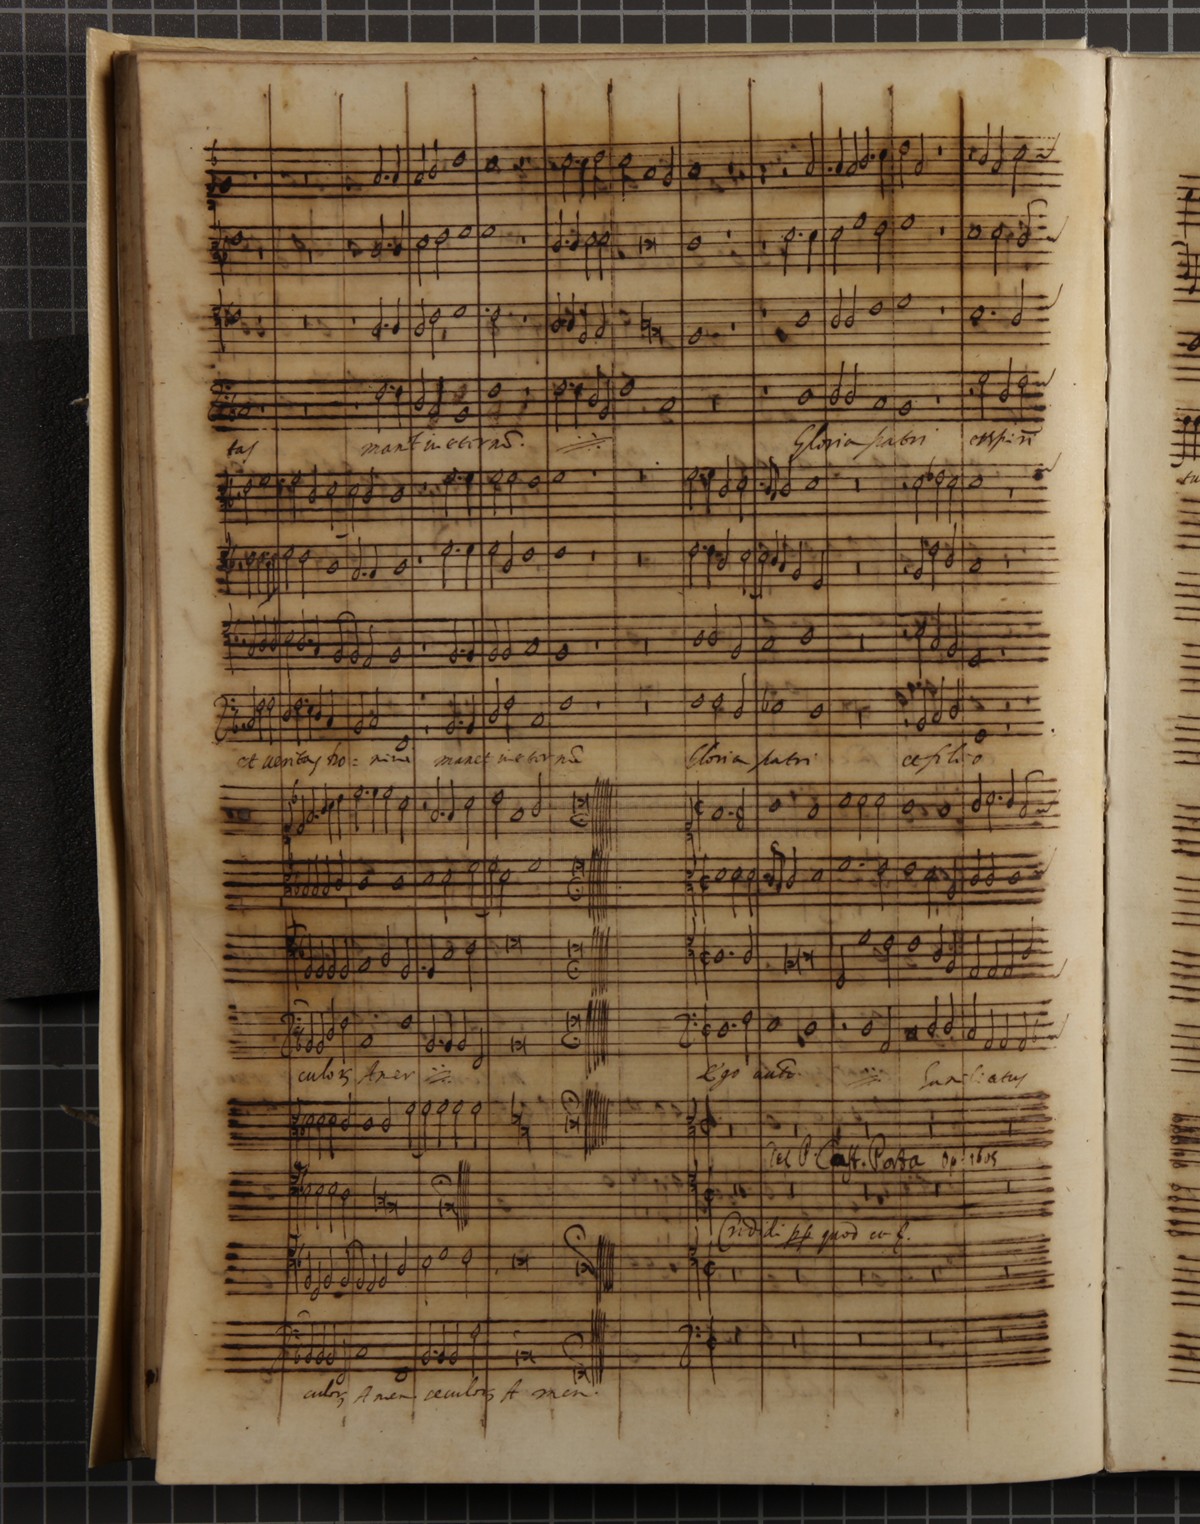 tas manet in eternū. Gloria patri et spiri
et veritas do = mini manet in eternū Gloria patri et filio
culorꝫ Amen Ego autē humiliatus
Del P. Cost. Porta Op. 1605
Credidi pp quod
culorꝫ Amen seculorꝫ A men.